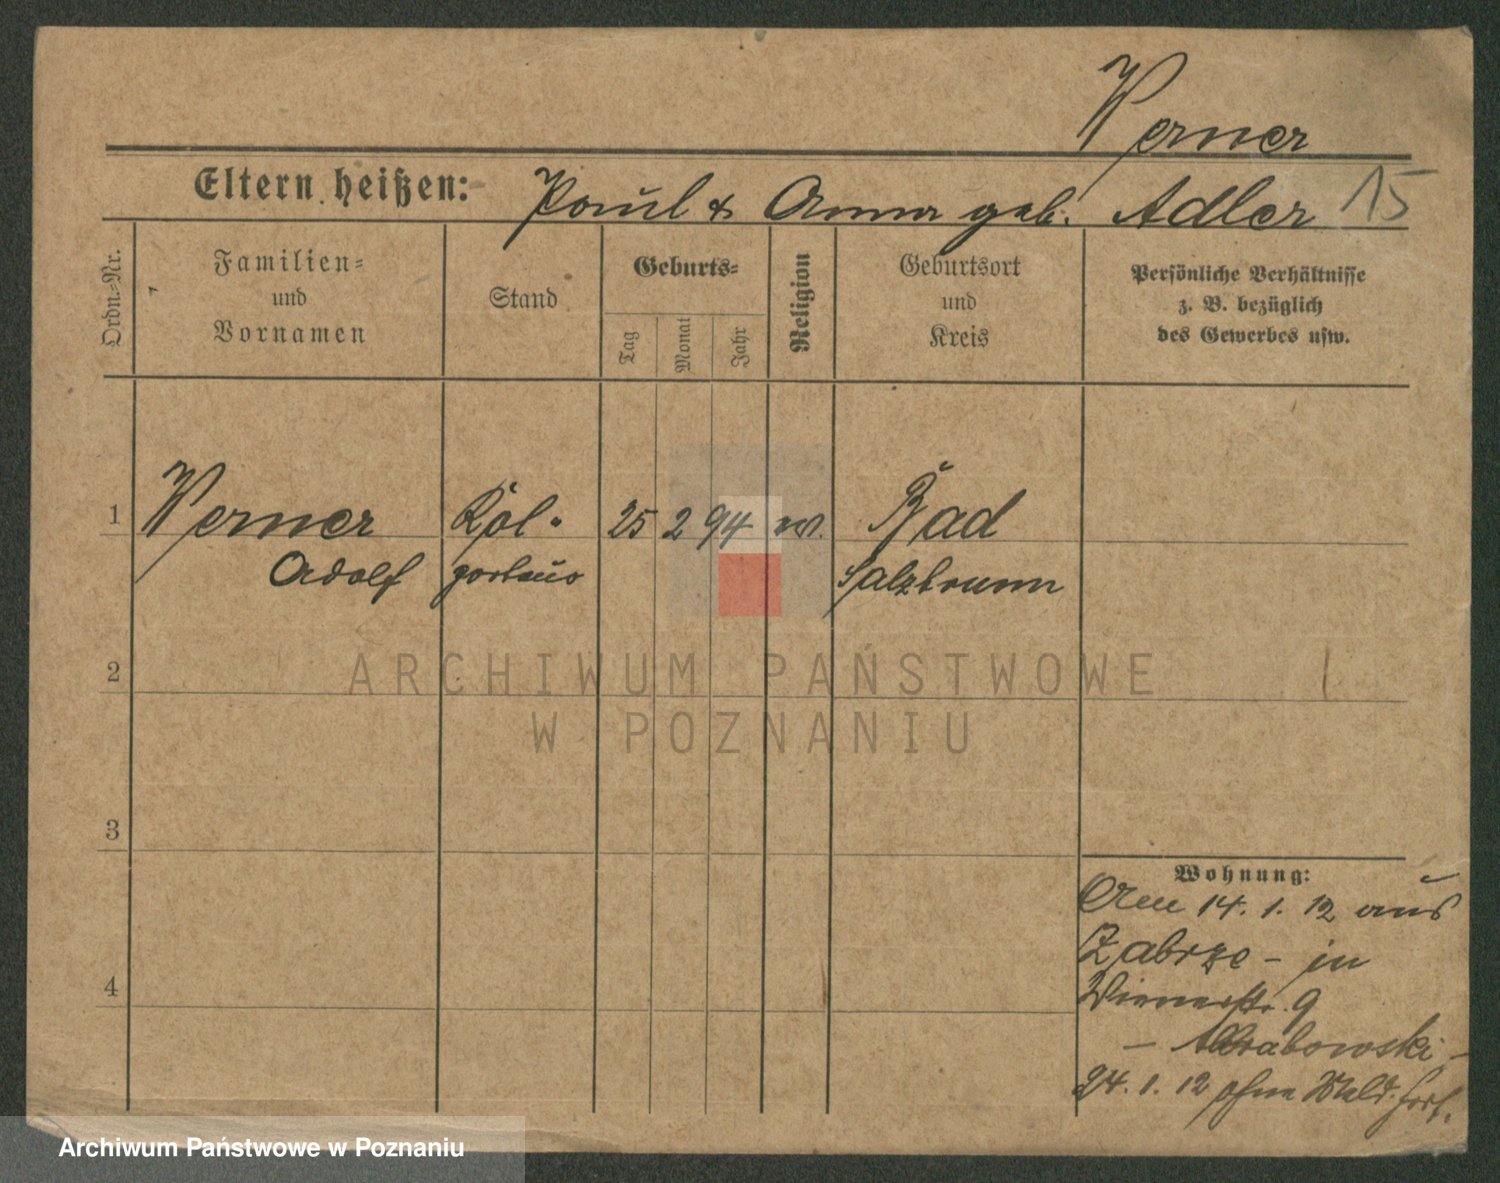 Werner
Eltern heißen: Paul & Anna geb. Adler 15
Ordn.=Nr.
Familien=
und
Vornamen
Stand
Geburts=
Tag
Monat
Jahr
Religion
Geburtsort
und
Kreis
Persönliche Verhältnisse
z. B. bezüglich
des Gewerbes usw.
1 Werner Kol- 25 2 94 ev. Bad
Adolf porteur Salzbrunn
2
3
4
Wohnung:
Am 14. 1. 12 aus
Zabrze - in
Wienerstr. 9
- Grabowski -
24. 1. 12 ohne Meld. fort.
ARCHIWUM PAŃSTWOWE
W POZNANIU
Archiwum Państwowe w Poznaniu